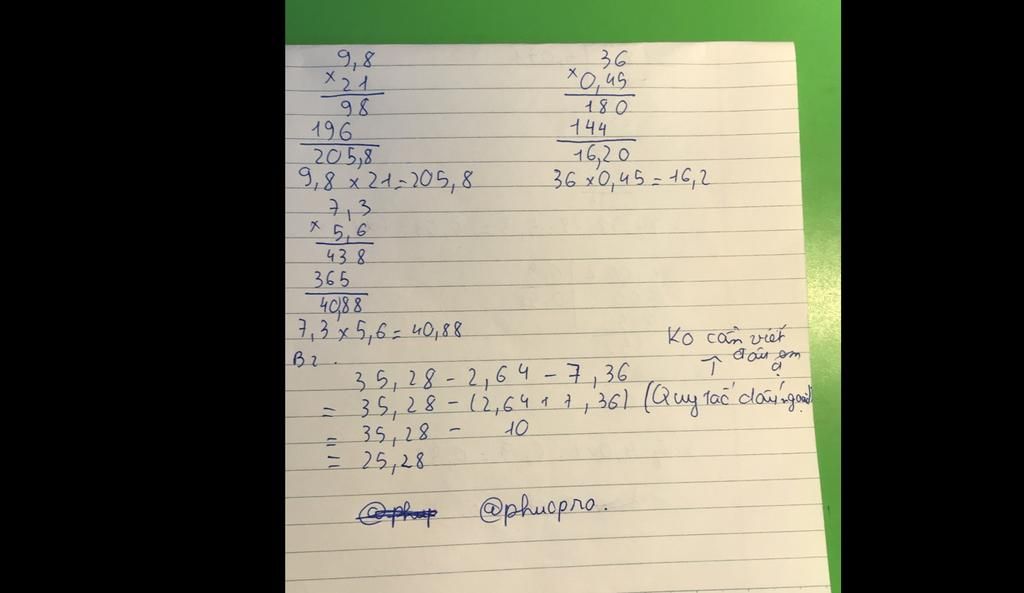 9,8
× 21
98
196
205,8
9,8 × 21 = 205,8
36
× 0,45
180
144
16,20
36 × 0,45 = 16,2
7,3
× 5,6
438
365
40,88
7,3 × 5,6 = 40,88
Ko cần viết
↑ đâu em ạ
B2.
35,28 - 2,64 - 7,36
= 35,28 - (2,64 + 7,36) (Quy tắc dấu ngoặc)
= 35,28 - 10
= 25,28
@phucpro.